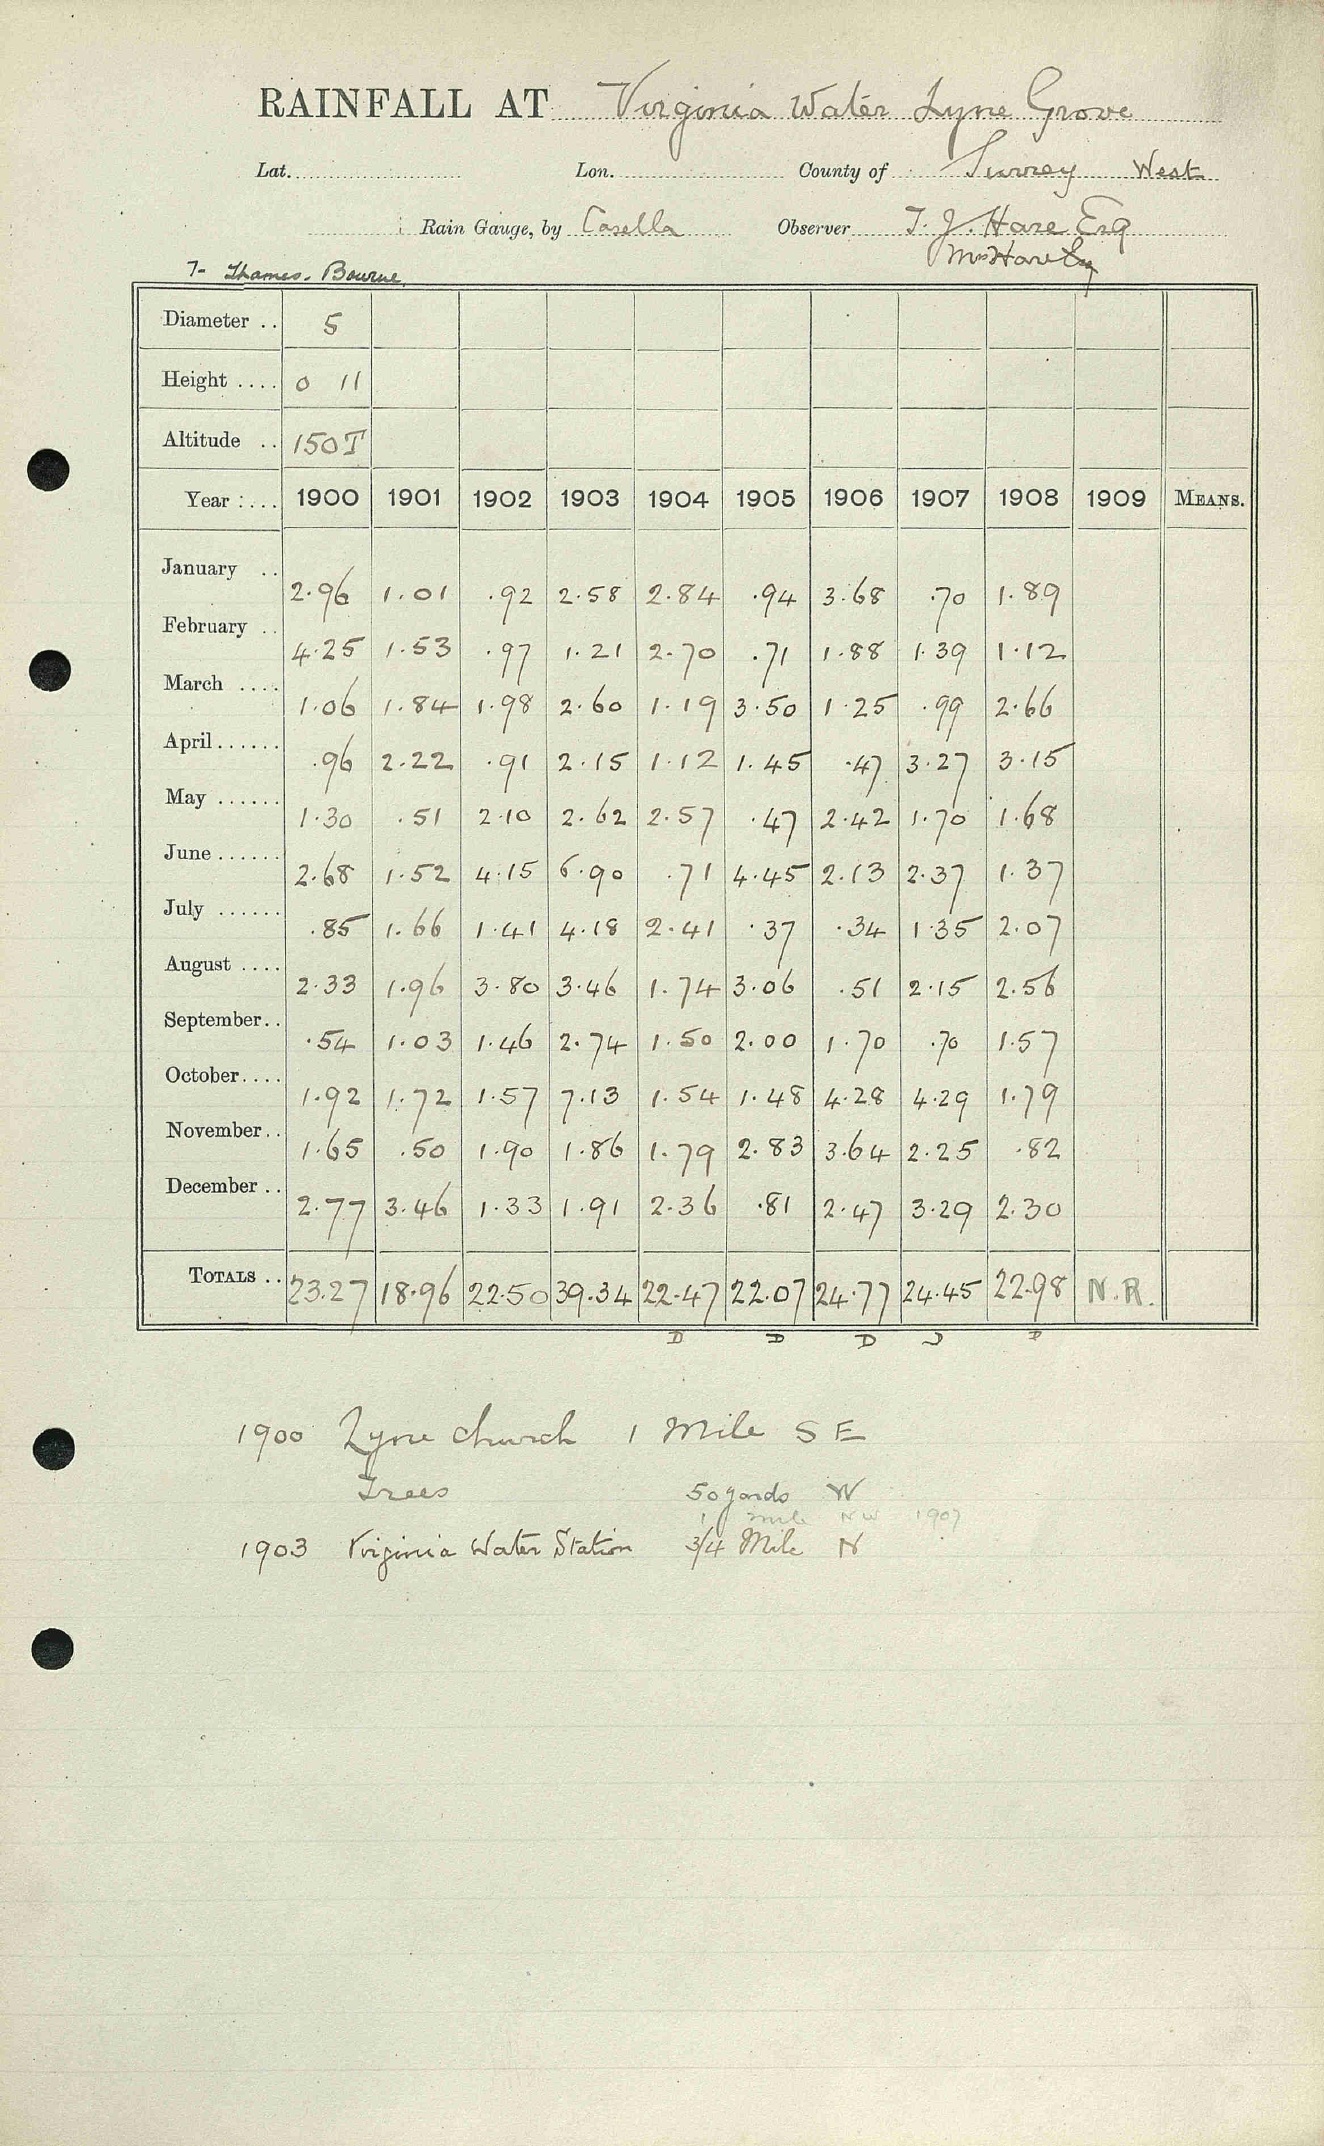 RAINFALL AT Virginia Water Lyne Grove
Lat. Lon. County of Surrey West
Rain Gauge, by Casella Observer T. J. Hare Esq
Mrs Hare
7- Thames. Bourne.
Diameter .. 5
Height .... 0 11
Altitude .. 150T
Year .... 1900 1901 1902 1903 1904 1905 1906 1907 1908 1909 MEANS.
January .. 2.96 1.01 .92 2.58 2.84 .94 3.68 .70 1.89
February .. 4.25 1.53 .97 1.21 2.70 .71 1.88 1.39 1.12
March .... 1.06 1.84 1.98 2.60 1.19 3.50 1.25 .99 2.66
April ...... .96 2.22 .91 2.15 1.12 1.45 .47 3.27 3.15
May ...... 1.30 .51 2.10 2.62 2.57 .47 2.42 1.70 1.68
June ...... 2.68 1.52 4.15 6.90 .71 4.45 2.13 2.37 1.37
July ...... .85 1.66 1.41 4.18 2.41 .37 .34 1.35 2.07
August .... 2.33 1.96 3.80 3.46 1.74 3.06 .51 2.15 2.56
September.. .54 1.03 1.46 2.74 1.50 2.00 1.70 .70 1.57
October.... 1.92 1.72 1.57 7.13 1.54 1.48 4.28 4.29 1.79
November.. 1.65 .50 1.90 1.86 1.79 2.83 3.64 2.25 .82
December .. 2.77 3.46 1.33 1.91 2.36 .81 2.47 3.29 2.30
TOTALS .. 23.27 18.96 22.50 39.34 22.47 22.07 24.77 24.45 22.98 N.R.
D D D D
1900 Lyne Church 1 Mile S E
Trees 50 yards W
1 mile NW 1907
1903 Virginia Water Station 3/4 Mile N